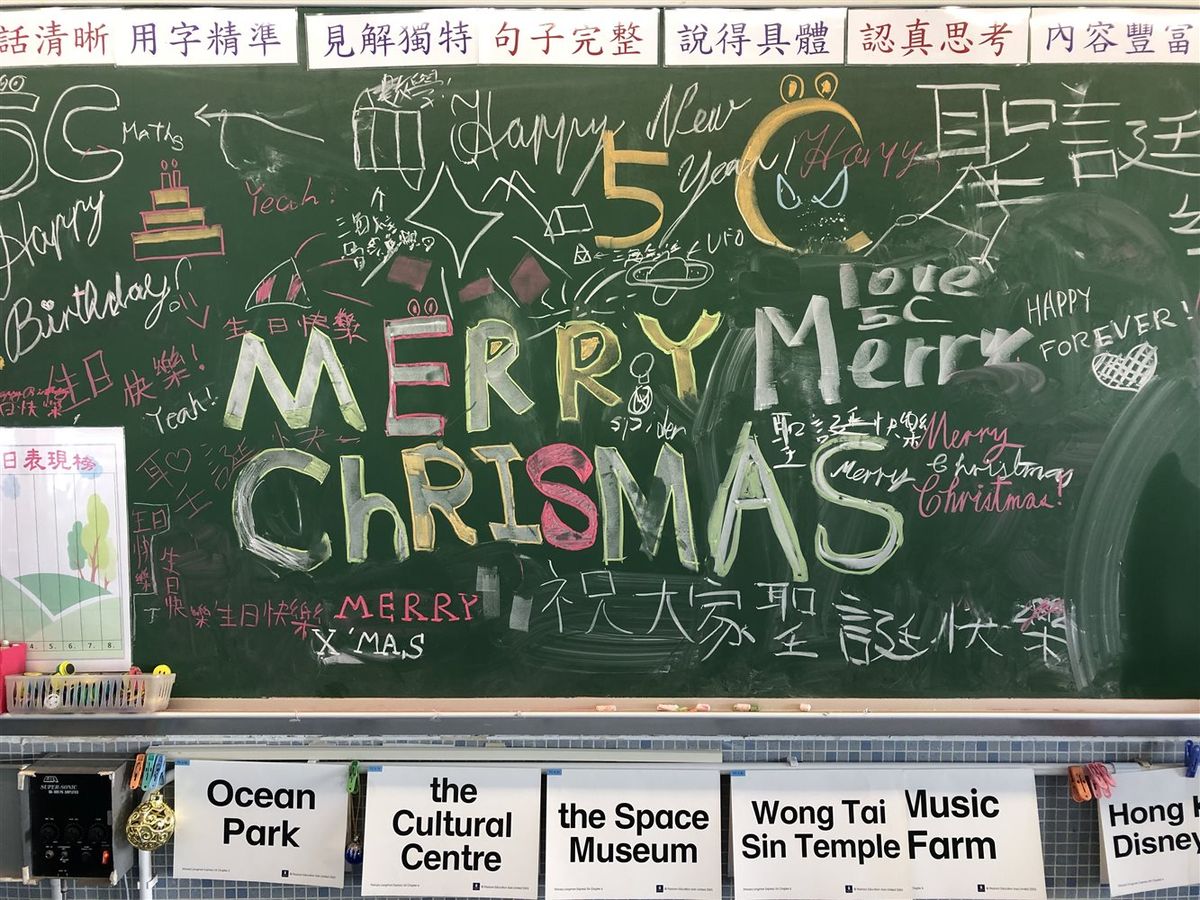 話清晰
用字精準
見解獨特
句子完整
說得具體
認真思考
內容豐富
5C
Maths
Happy New
Year!
Harry
聖誕
5C
Yeah!
Happy
Birthday!
UFO
love
5C
HAPPY
FOREVER!
生日快樂
生日
快樂!
Yeah!
MERRY
Merry
spider
聖誕快樂
Merry
Christmas!
Merry Christmas
ChRISMAS
日表現榜
4. 5. 6. 7. 8.
生日快樂
生日快樂
生日快樂
MERRY
X'MAS
祝大家聖誕快樂
SUPER-SONIC
Ocean
Park
the
Cultural
Centre
the Space
Museum
Wong Tai
Sin Temple
Music
Farm
Hong
Disney